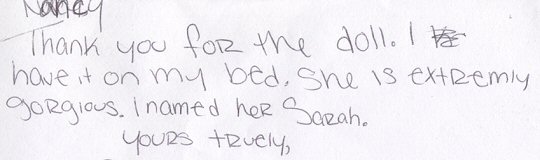 Nancy
Thank you for the doll. I
have it on my bed. She is extremly
gorgious. i named her Sarah.
yours truely,